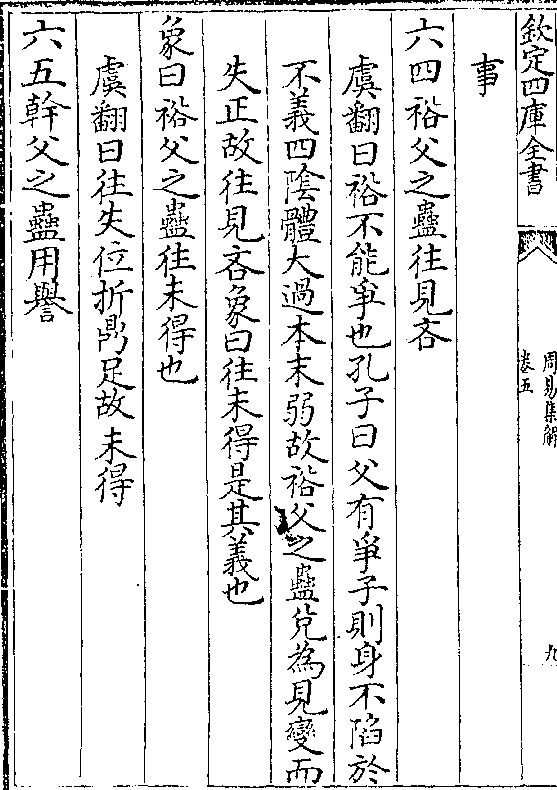 欽定四庫全書
周易集解
卷五
九
事
六四裕父之蠱往見吝
虞翻曰裕不能爭也孔子曰父有爭子則身不陷於
不義四陰體大過本末弱故裕父之蠱兌為見變而
失正故往見吝象曰往未得是其義也
象曰裕父之蠱往未得也
虞翻曰往失位折鼎足故未得
六五幹父之蠱用譽